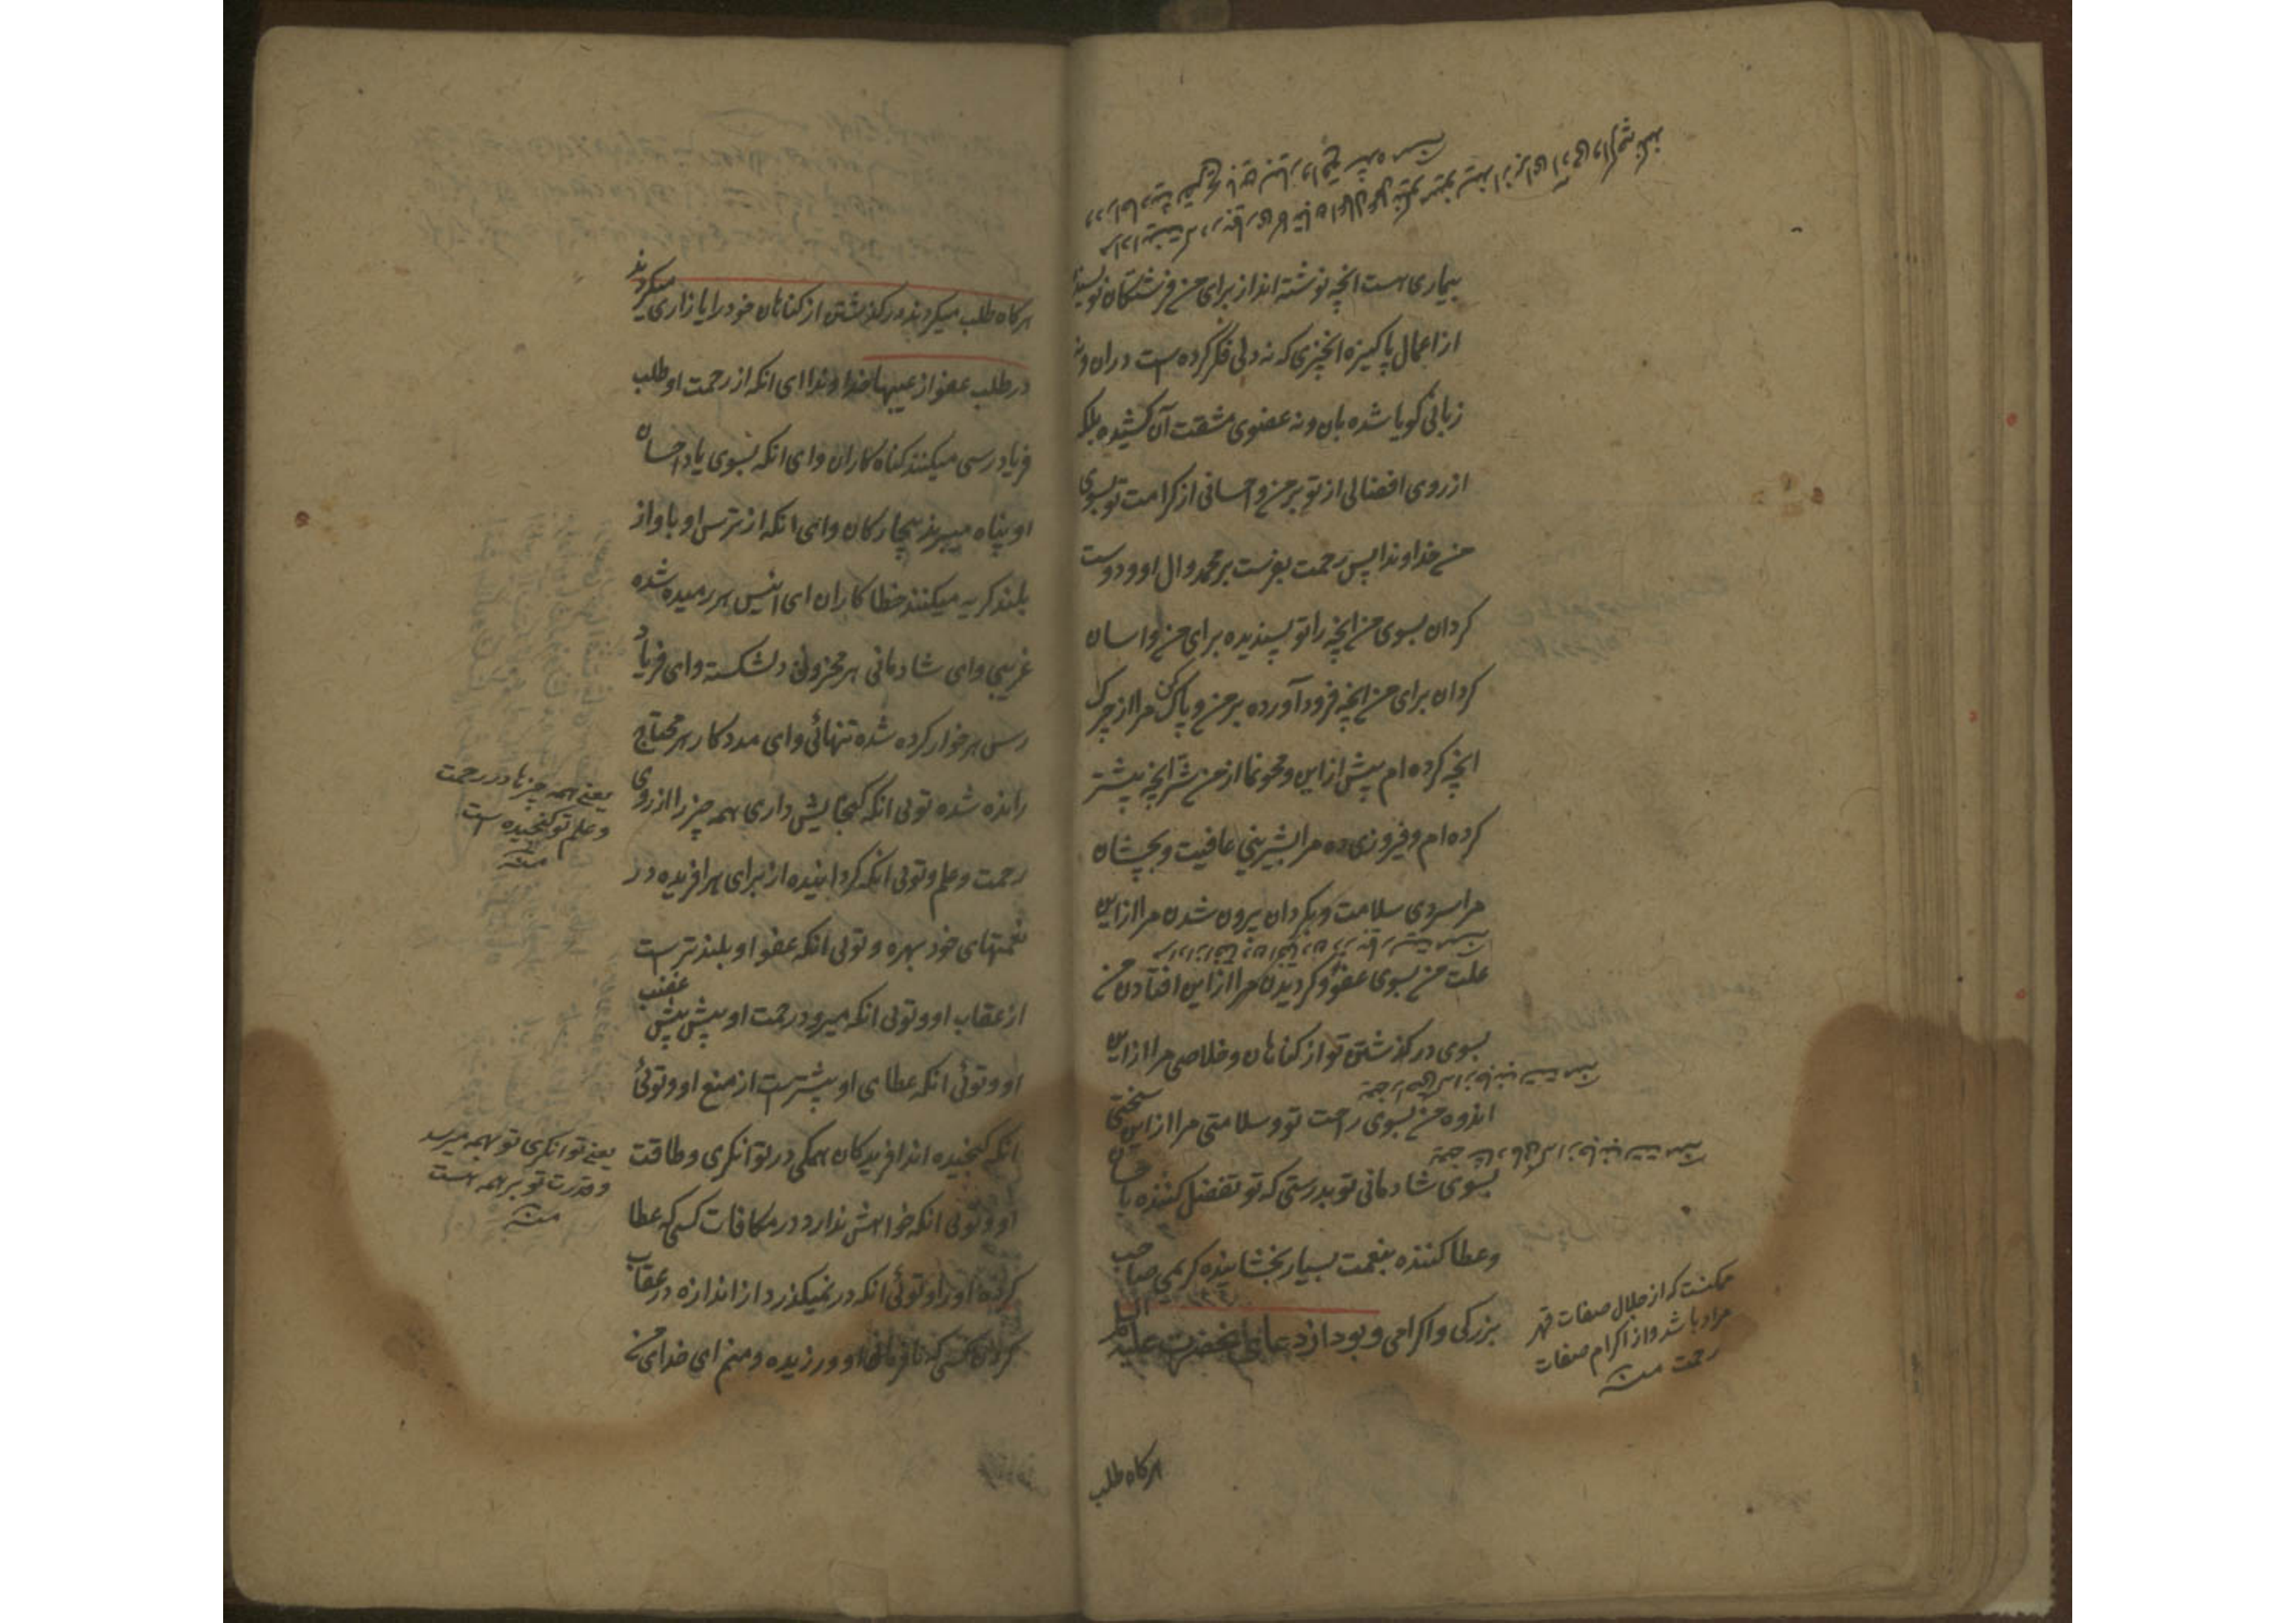 بیماری است انچه نوشته اند از برای من فرشتگان نویسنده
از اعمال پاکیزه انچیزی که نه دلی فکر کرده است دران و نه
زبانی کویا شده بان و نه عضوی مشقت آن کشیده بلکه
از روی افضالی از تو بر من و احسانی از کرامت تو بسوی
من خداوندا پس رحمت بفرست بر محمد و ال او و دوست
کردان بسوی من انچه را تو پسندیده برای من و اسان
کردان برای من انچه فرود آورده بر من و پاک کن مرا از چرک
انچه کرده ام پیش از این و محو نما از من شر انچه پیشتر
کرده ام و فیروزی ده مرا بشیرینی عافیت و بچشان
مرا سردی سلامت و بکردان بیرون شدن مرا از این
علت من بسوی عفو و کردیدن مرا از این افتادن من
بسوی درگذشتن تو از کناهان و خلاصی مرا از این
اندوه من بسوی راحت تو و سلامتی مرا از این سختی
بسوی شادمانی تو بدرستی که تو تفضل کننده با
وعطا کننده بنعمت بسیار بخشاینده کریمی صاحب
بزرکی و اکرامی و بود از دعای انحضرت علیه السلام
ممکنست که از جلال صفات قهر
مراد باشد و از اکرام صفات
رحمت منه
هرکاه طلب
هرکاه طلب میکردند درگذشتن از کناهان خود را یا زاری میکردند
در طلب عفو از عیبها خداوندا ای انکه از رحمت او طلب
فریاد رسی میکنند کناه کاران و ای انکه بسوی یاد احسان
او پناه میبرند بیچارکان و ای انکه از ترس او باواز
بلند کریه میکنند خطا کاران ای انیس هر رمیده شده
غریبی و ای شادمانی هر محزونی دلشکسته و ای فریاد
رس هر خوار کرده شده تنهائی و ای مددکار هر محتاج
رانده شده توئی انکه کنجایش داری همه چیز را از روی
رحمت و علم و توئی انکه کردانیده از برای هر افریده در
نعمتهای خود بهره و توئی انکه عفو او بلندتر است
از عقاب او و توئی انکه میرود رحمت او پیش پیش غضب
او و توئی انکه عطای او بیشتر است از منع او و توئی
انکه کنجیده اند افریدکان همکی در توانکری و طاقت
او و توئی انکه خواهش ندارد در مکافات کسی که عطا
کرده او را و توئی انکه در نمیکذرد از اندازه در عقاب
کردن کسی که نافرمانی او ورزیده و منم ای خدای من
یعنی همه چیزها در رحمت
و علم تو کنجیده است
منه
یعنی توانکری تو بهمه میرسد
و قدرت تو بر همه است
منه